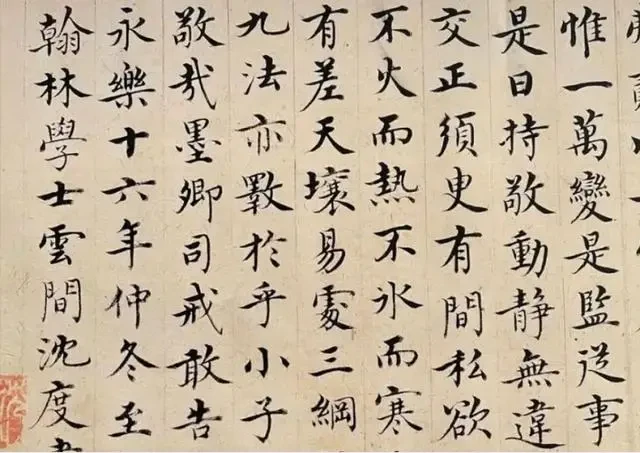 惟一萬變是監從事
是曰持敬動靜無違
交正須臾有間私欲
不火而熱不氷而寒
有差天壤易處三綱
九法亦斁於乎小子
敬哉墨卿司戒敢告
永樂十六年仲冬至
翰林學士雲間沈度